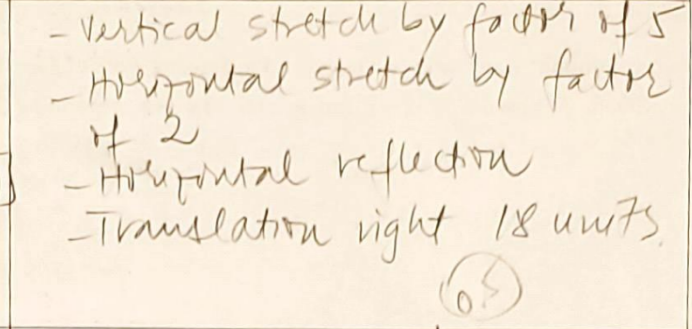 - Vertical stretch by factor of 5
- Horizontal stretch by factor
of 2
- Horizontal reflection
- Translation right 18 units.